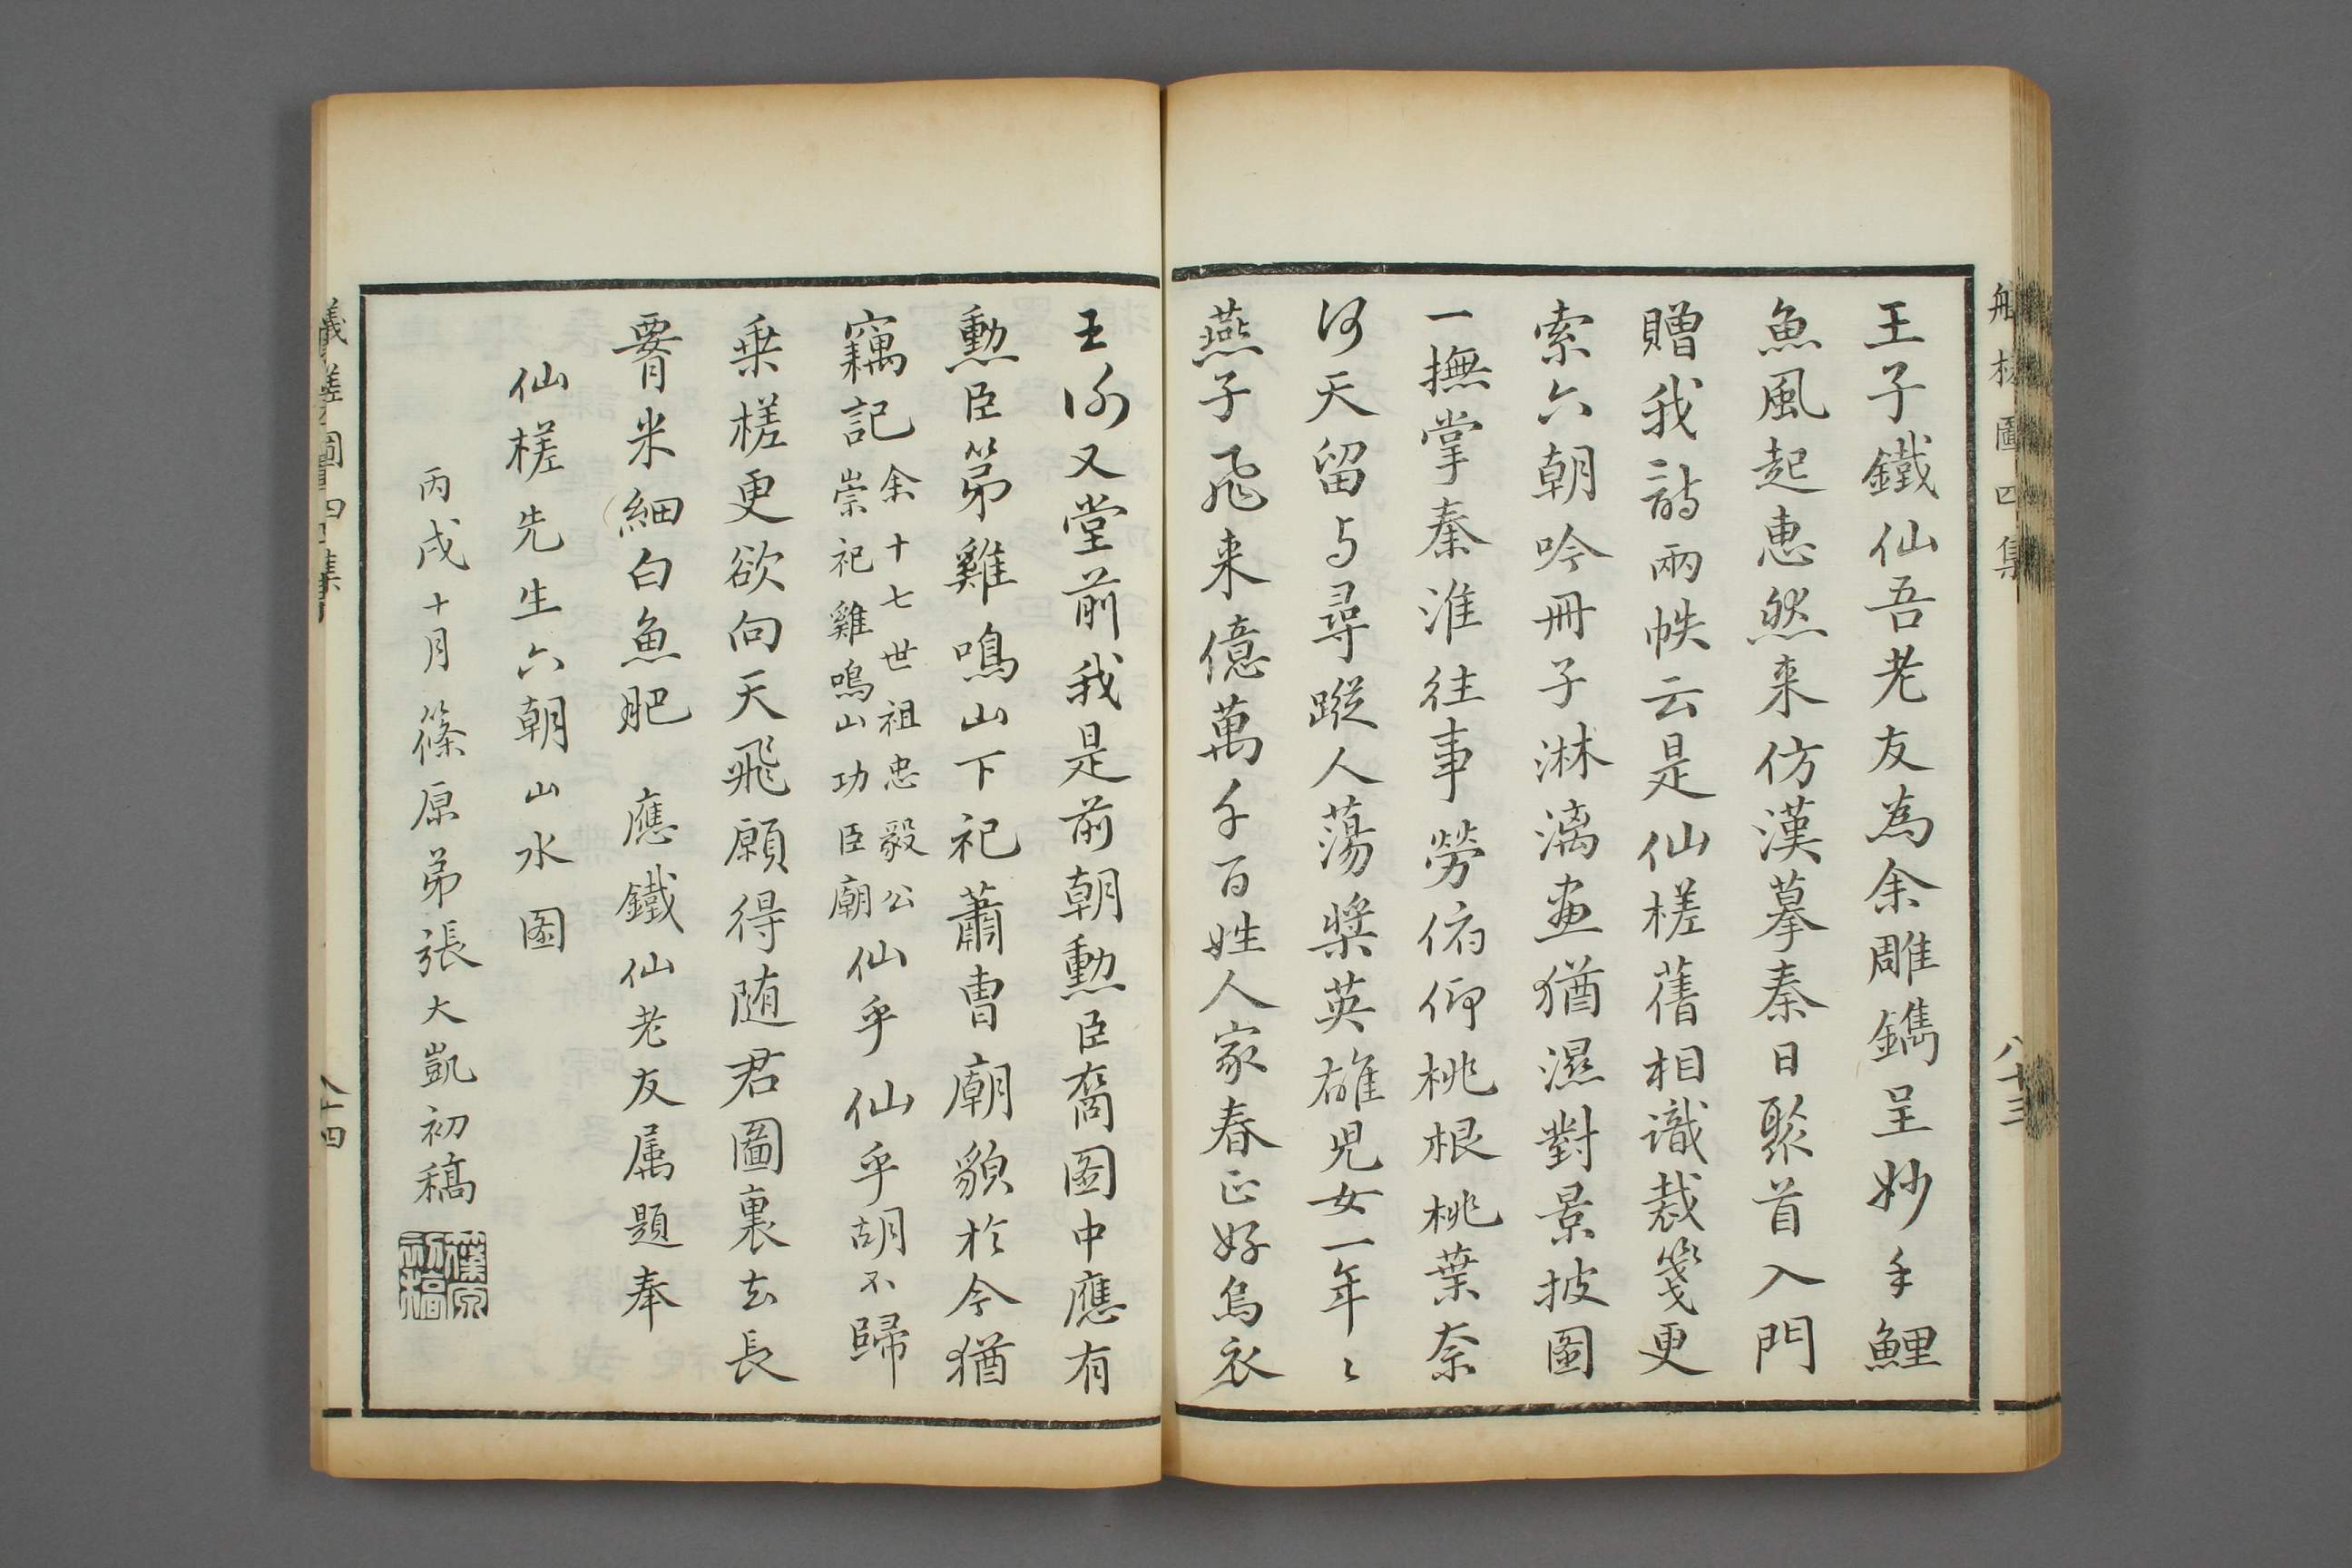 王子鐵仙吾老友為余雕鐫呈妙手鯉
魚風起恵然来仿漢摹秦日聚首入門
贈我詩兩帙云是仙槎舊相識裁箋更
索六朝吟冊子淋漓畫猶濕對景披圖
一撫掌秦淮往事勞俯仰桃根桃葉奈
何天留与尋蹤人蕩槳英雄児女一年〻
燕子飛来億萬千百姓人家春正好烏衣
王謝又堂前我是前朝勲臣裔图中應有
勲臣第雞鳴山下祀蕭曹廟貌於今猶
竊記
余十七世祖忠毅公
崇祀雞鳴山功臣廟
仙乎仙乎胡不歸
乗槎更欲向天飛願得随君圖裏去長
腰米細白魚肥　應鐵仙老友属題奉
仙槎先生六朝山水图
丙戌十月篠原弟張大凱初稿
圖四集
八十三
槎圖四集
八十四